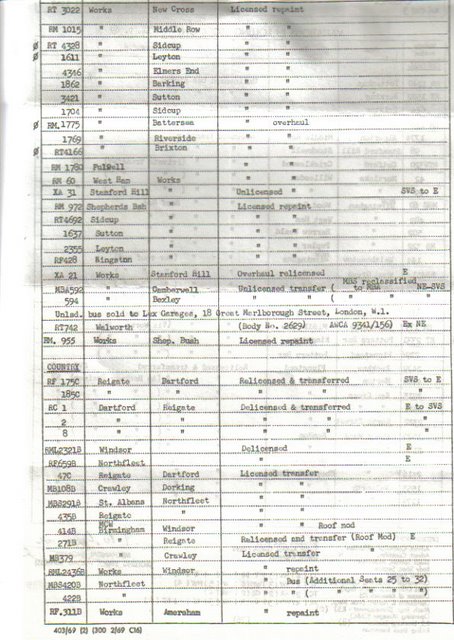 RT 3022 Works New Cross Licensed repaint
RM 1015 " Middle Row " "
Ø RT 4328 " Sidcup " "
Ø 1611 " Leyton " "
4346 " Elmers End " "
1862 " Barking " "
3421 " Sutton " "
1704 " Sidcup " "
Ø RM.1775 " Battersea " overhaul
1769 " Riverside " "
Ø RT4166 " Brixton " "
RM 1780 Fulwell " " "
RM 60 West Ham Works " "
XA 31 Stamford Hill " Unlicensed " SVS to E
RM 972 Shepherds Bsh " Licensed repaint
RT4692 Sidcup " " "
1637 Sutton " " "
2355 Leyton " " "
RF428 Kingston " " "
XA 21 Works Stamford Hill Overhaul relicensed E
MBA592 " Camberwell Unlicensed transfer ( MBS reclassified to MBA NE-SVS
594 " Bexley " " ( " " "
Unlsd. bus sold to Lex Garages, 18 Great Marlborough Street, London, W.1.
RT742 Walworth (Body No. 2629) AWCA 9341/156) Ex NE
RM. 955 Works Shep. Bush Licensed repaint
COUNTRY
RF 175C Reigate Dartford Relicensed & transferred SVS to E
185C " " " " "
RC 1 Dartford Reigate Delicensed & transferred E to SVS
2 " " " " "
8 " " " " "
RML2321B Windsor Delicensed E
RF659B Northfleet " E
47C Reigate Dartford Licensed transfer
MB108B Crawley Dorking " "
MBS291B St. Albans Northfleet " "
435B Reigate " " "
414B MCW Birmingham Windsor " " Roof mod
271B " Reigate Relicensed and transfer (Roof Mod) E
MB379 " Crawley Licensed transfer "
RML2436B Works Windsor " repaint
MBS420B Northfleet " Bus (Additional Seats 25 to 32)
422B " " " ( " " " ")
RF.311D Works Amersham " repaint
403/69 (2) (300 2/69 C16)